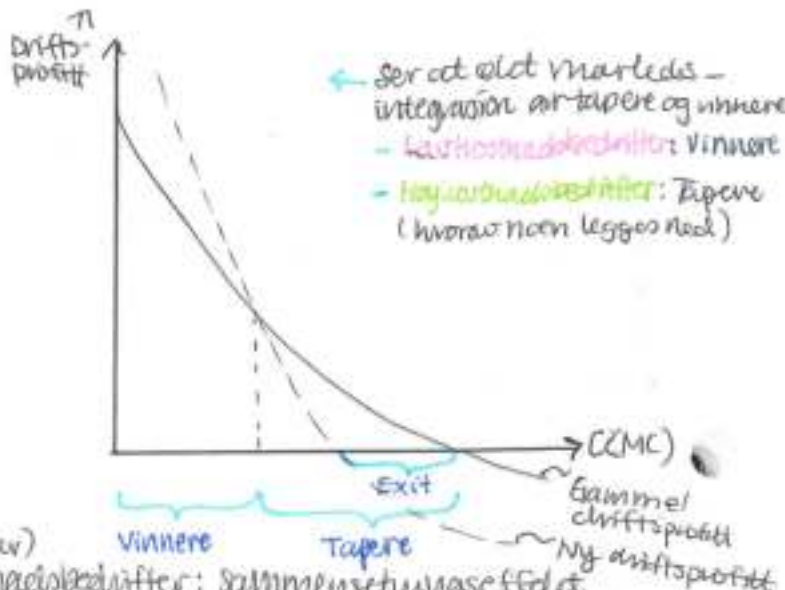 π
Drifts-
profitt
← Ser at økt markeds-
integrasjon gir tapere og vinnere
- Lavkostnadsbedrifter: Vinnere
- Høykostnadsbedrifter: Tapere
(hvorav noen legges ned)
C(MC)
Exit
Gammel
driftsprofitt
Vinnere
Tapere
Ny driftsprofitt
bedrifter: Sammensetningseffekt